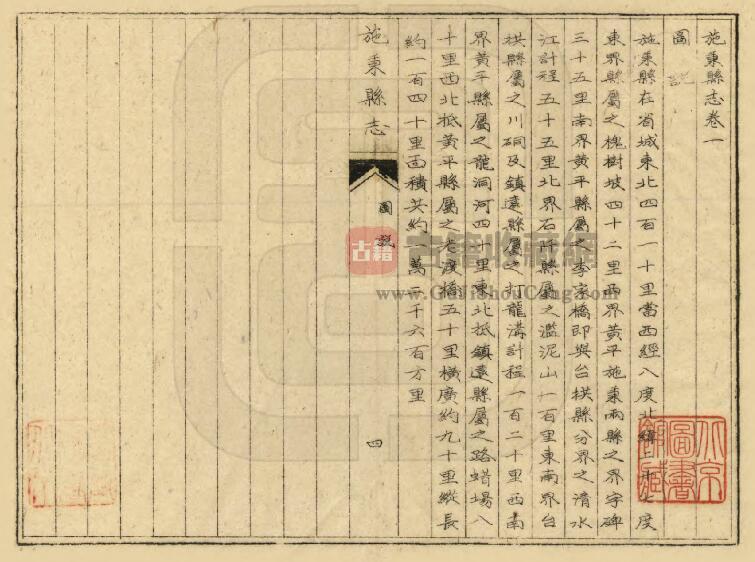 施秉縣志卷一
圖說
施秉縣在省城東北四百一十里當西經八度北緯二十七度
東界縣屬之槐樹坡四十二里西界黃平施秉兩縣之界字碑
三十五里南界黃平縣屬之李家橋即與台拱縣分界之清水
江計程五十五里北界石阡縣屬之濫泥山一百里東南界台
拱縣屬之川硐及鎮遠縣屬之打龍溝計程一百二十里西南
界黃平縣屬之龍洞河四十里東北抵鎮遠縣屬之路蜡場八
十里西北抵黃平縣屬之老渡橋五十里橫廣約九十里縱長
約一百四十里面積共約一萬二千六百方里
施秉縣志
圖說
四
古籍
古籍收藏網
www.GuJiShouCang.com
北京
圖書
館藏